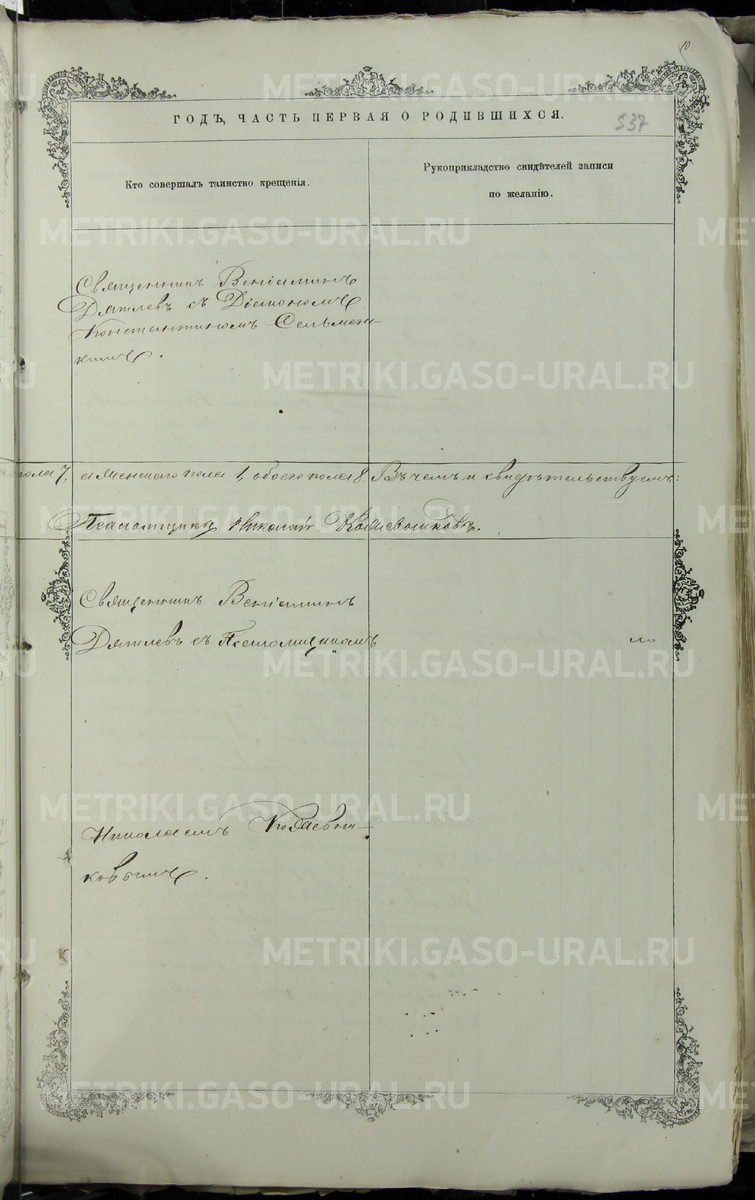 10.
ГОДЪ, ЧАСТЬ ПЕРВАЯ О РОДИВШИХСЯ.
537
Кто совершалъ таинство крещенія.
Рукоприкладство свидѣтелей записи
по желанію.
Священникъ Веніаминъ
Дягилевъ съ Діакономъ
Константиномъ
пола 7, а женскаго пола 1, обоего пола 8. Въ чемъ и свидѣтельствуемъ:
Псаломщикъ Николай
Священникъ Веніаминъ
Дягилевъ съ Псаломщикомъ
Николаемъ
METRIKI.GASO-URAL.RU